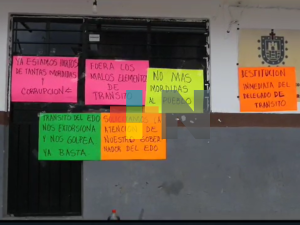 YA ESTAMOS HARTOS
DE TANTAS MORDIDAS
Y
CORRUPCION
FUERA LOS
MALOS ELEMENTOS
DE
TRANSITO
NO MAS
MORDIDAS
AL PUEBLO
DESTITUCION
INMEDIATA DEL
DELEGADO DE
TRANSITO
TRANSITO DEL EDO
NOS EXTORSIONA
Y NOS GOLPEA
YA BASTA
ATENCION DE
NUESTRO GOBER
NADOR DEL EDO